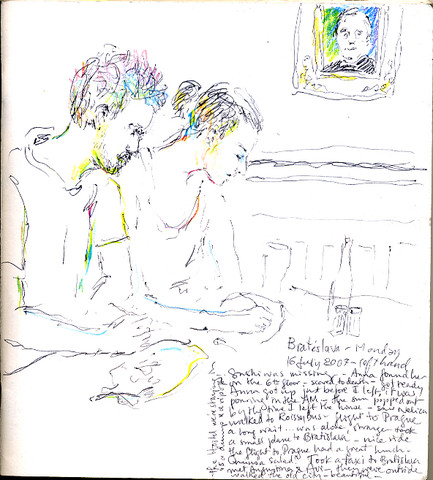 Bratislava - Monday
16 July 2007 - left hand
Sonshi was missing - Anna found her
on the 6th floor - scared to death - got ready
Anna got up just before I left, it was
pouring in the AM - the sun popped out
by the time I left the house - saw
walked to Rossybus - flight to Prague
a long wait... was alone, strange - took
a small plane to Bratislava - nice ride
the flight to Prague had a great lunch -
Quinoa salad Took a taxi to Bratislava
met everything & Avi - they were outside
walked the old city - beautiful -
The Hostel were staying in
is a dump